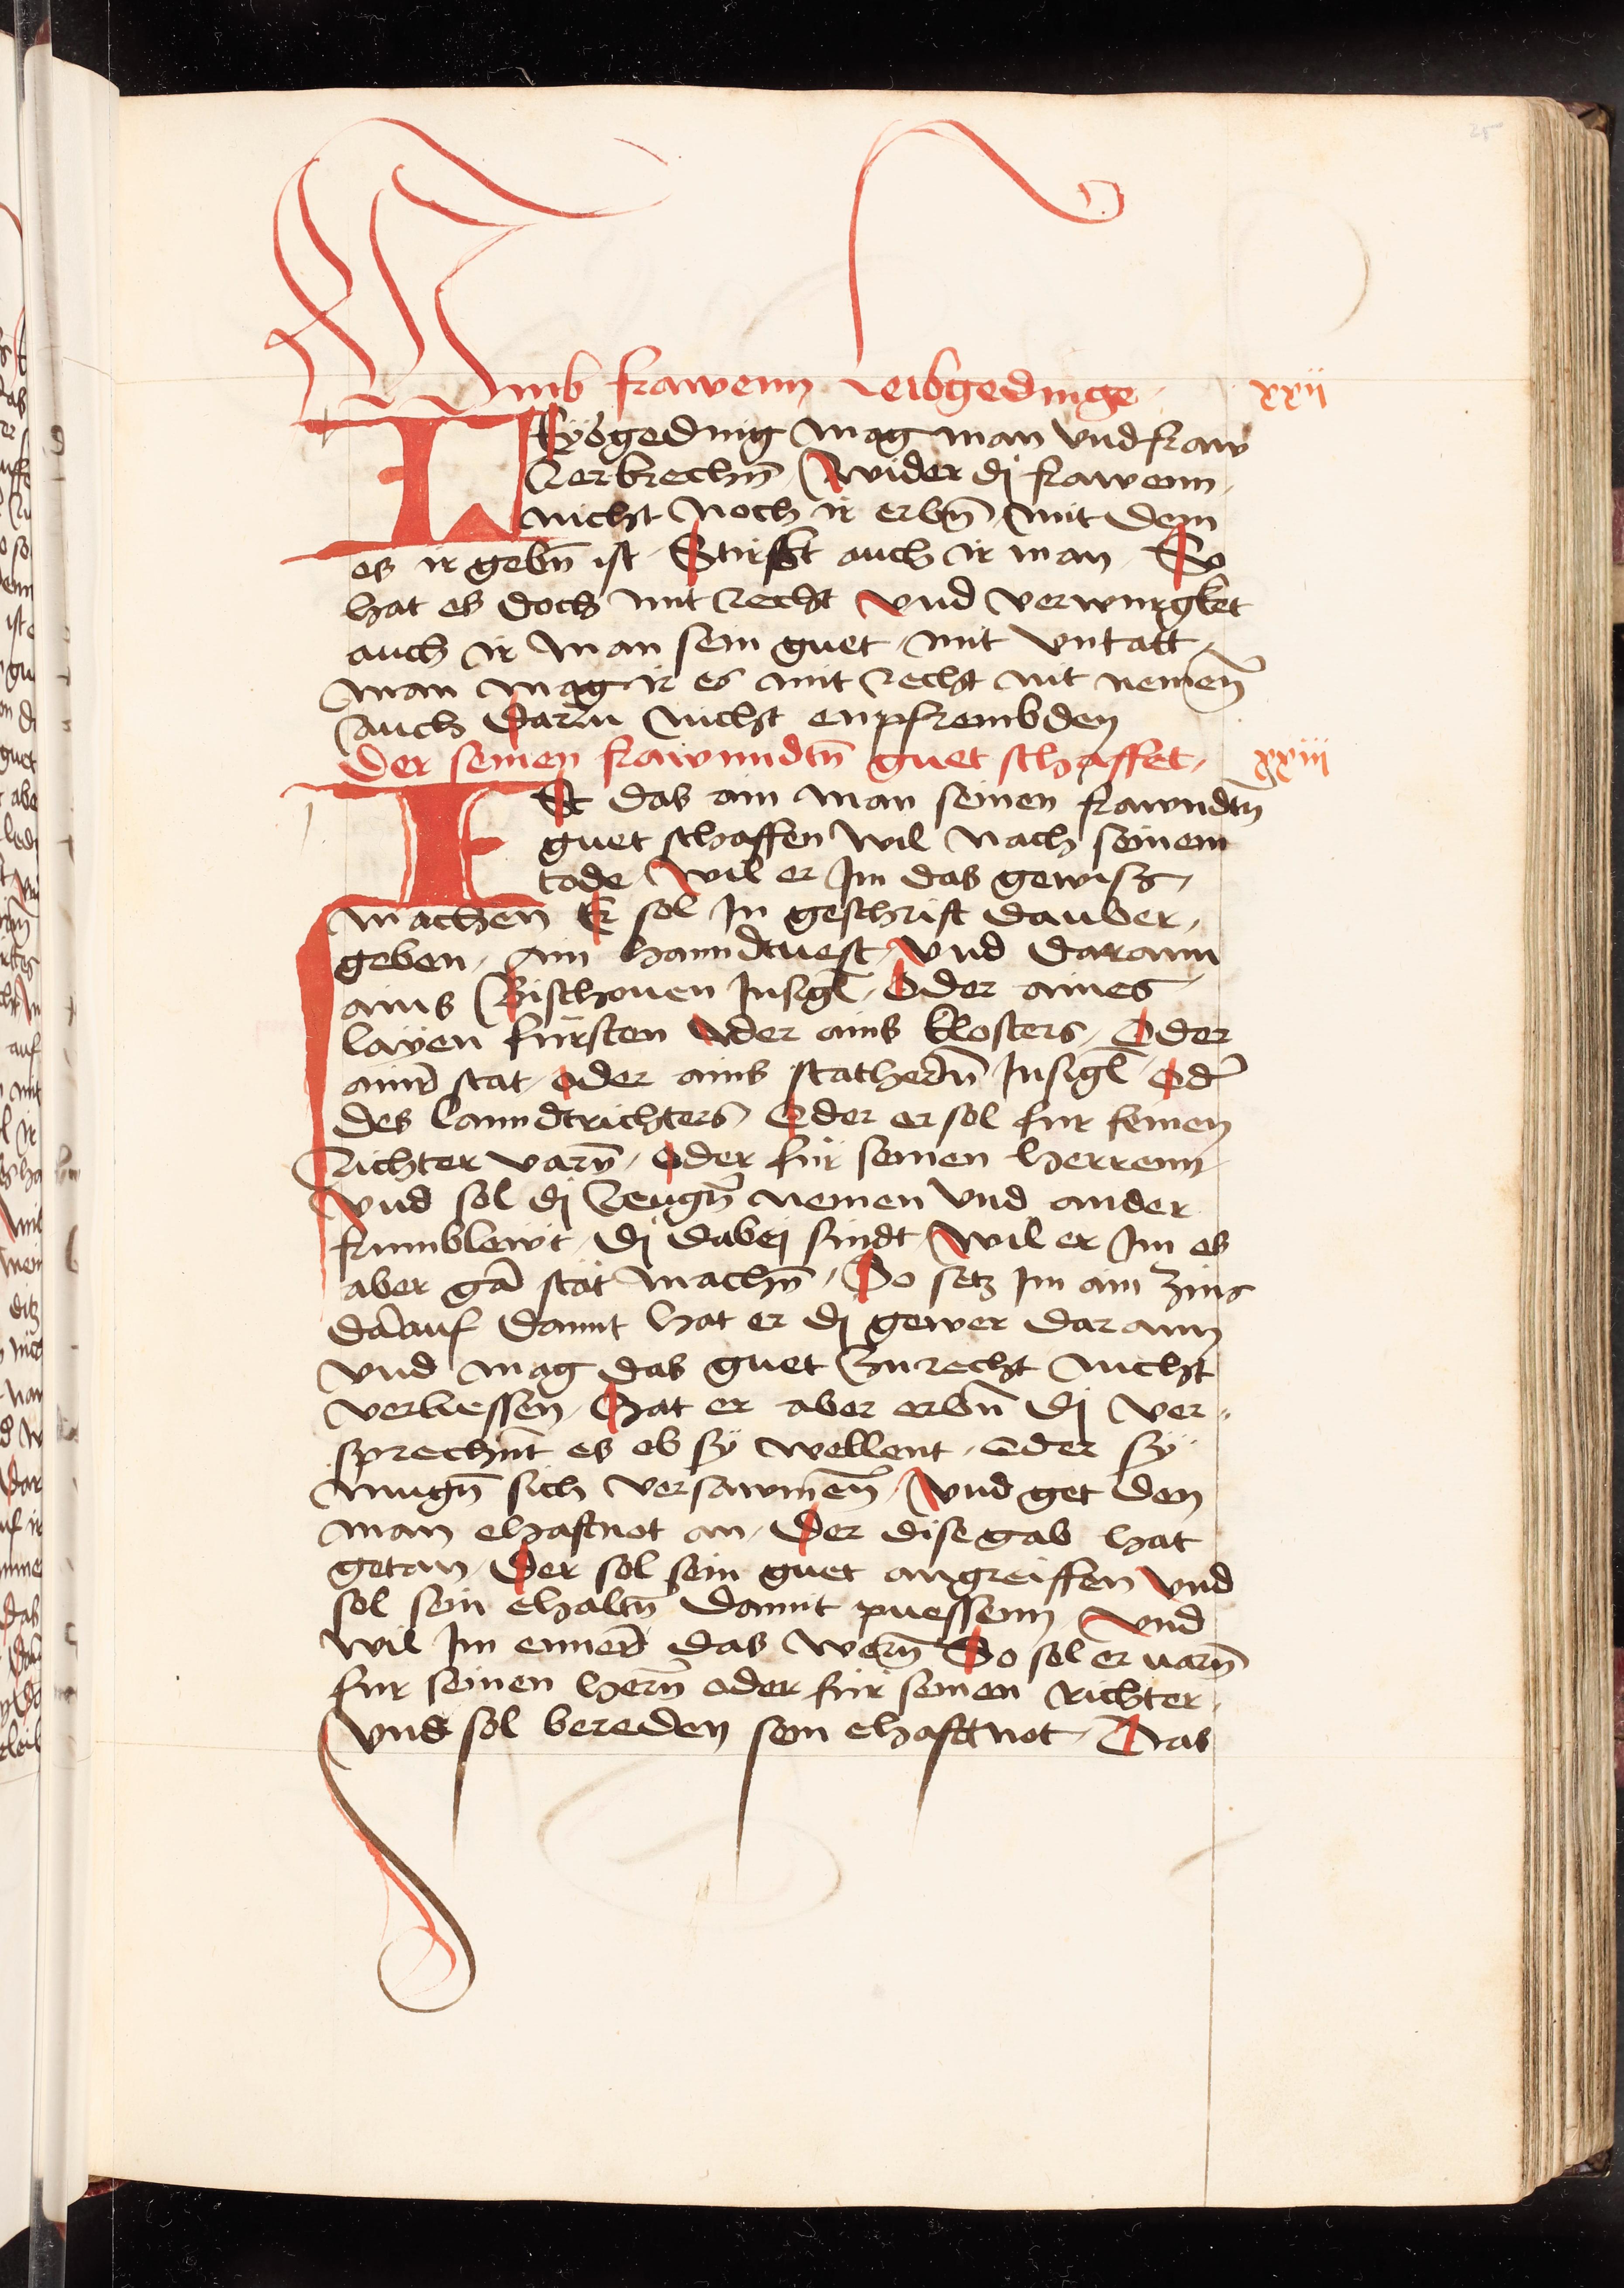 25
Umb frawenn Leibgedinge xxii
LEybgeding mag man vnd fraw
Zerbrechn̄ Wider dj frawenn
nicht Noch ir erbn̄ mit dem
es ir gebn̄ ist Stirbt auch ir man So
hat es doch mit Recht Vnd verwurgket
auch ir Man sein guet mit vntatt
man mag ir es mit Recht nit nemen̄
auch darūm Nicht enpfrembden
Der seinen frawnndtn̄ guet schaffet xxiii
ISt das ain man seinen frawndtn̄
guet schaffen wil Nach seinem
tode Wil er Im das gewiss
machen Er sol In geschrift dauber
geben Ain hanndtuest Vnd darann
ains Bischouen Insigl̄ Oder aines
layen fursten Oder ains Klosters Oder
ainer stat oder ains stathern̄ Insigl̄ Oder
des lanndtrichters Oder er sol fur seinen
Richter varn̄ Oder für seinen herrenn
Vnd sol dj Zeugn̄ nemen Vnd ander
frumblewt dj dabej sindt Wil er Im es
aber gar stät machn̄ So setz Im ain Zins
darauf damit hat er dj gewer darann
vnd mag das guet Zurecht nicht
verliessen Hat er aber erbn̄ dj ver
sprechnt es ob sy wellent oder sy
mugn̄ sich versawmen̄ Vnd get den
man ehaftnot an Der dise gab hat
getan Der sol sein guet angreiffen Vnd
sol sein ehaltn̄ damit puessenn Vnd
wil Im enner das wern̄ So sol er varn̄
fur seinen hern̄ oder für seinen Richter
Vnd sol bereden sein ehafttnot Das